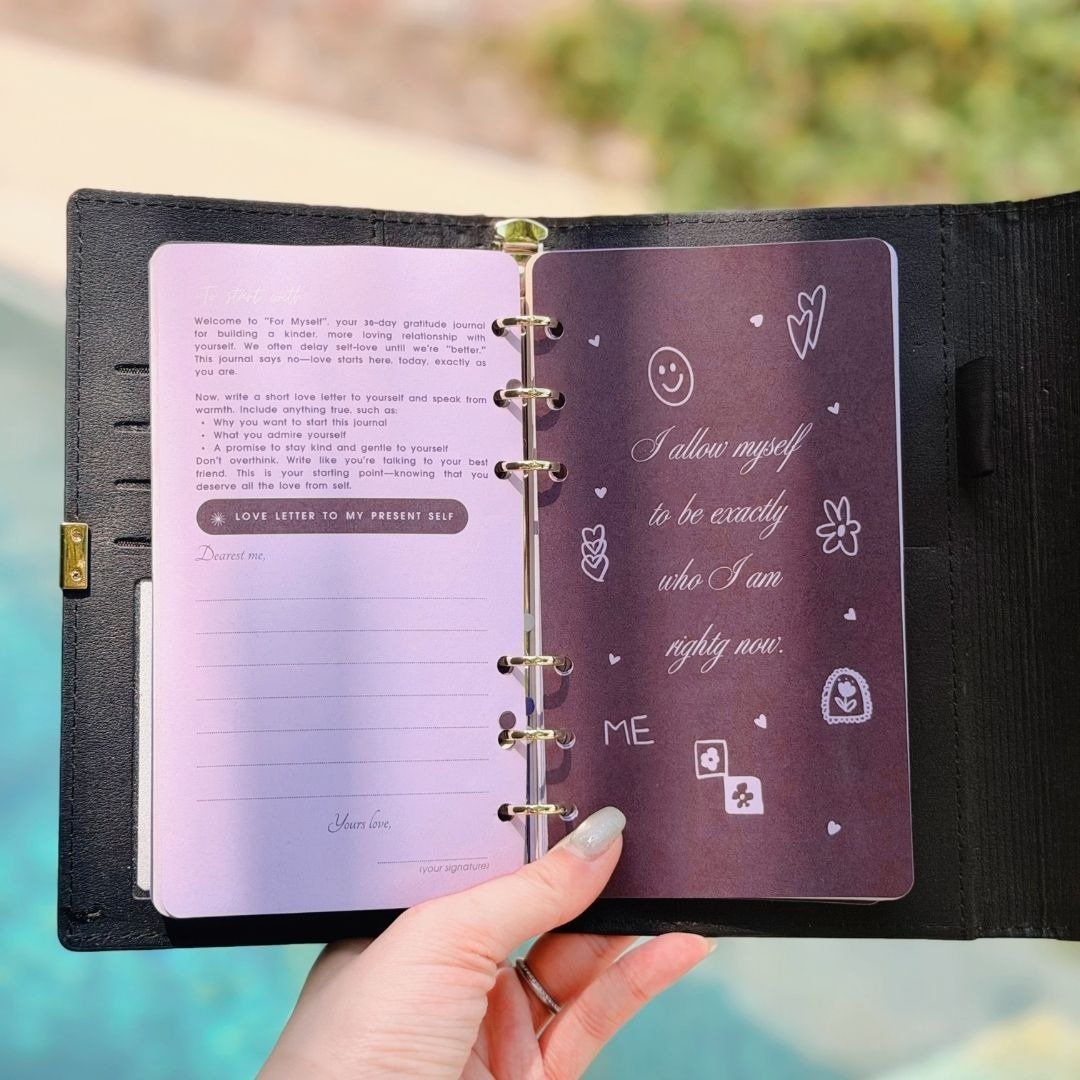 To start with
Welcome to "For Myself", your 30-day gratitude journal
for building a kinder, more loving relationship with
yourself. We often delay self-love until we're "better."
This journal says no—love starts here, today, exactly as
you are.
Now, write a short love letter to yourself and speak from
warmth. Include anything true, such as:
• Why you want to start this journal
• What you admire yourself
• A promise to stay kind and gentle to yourself
Don't overthink. Write like you're talking to your best
friend. This is your starting point—knowing that you
deserve all the love from self.
LOVE LETTER TO MY PRESENT SELF
Dearest me,
Yours love,
(your signature)
I allow myself
to be exactly
who I am
rightg now.
ME